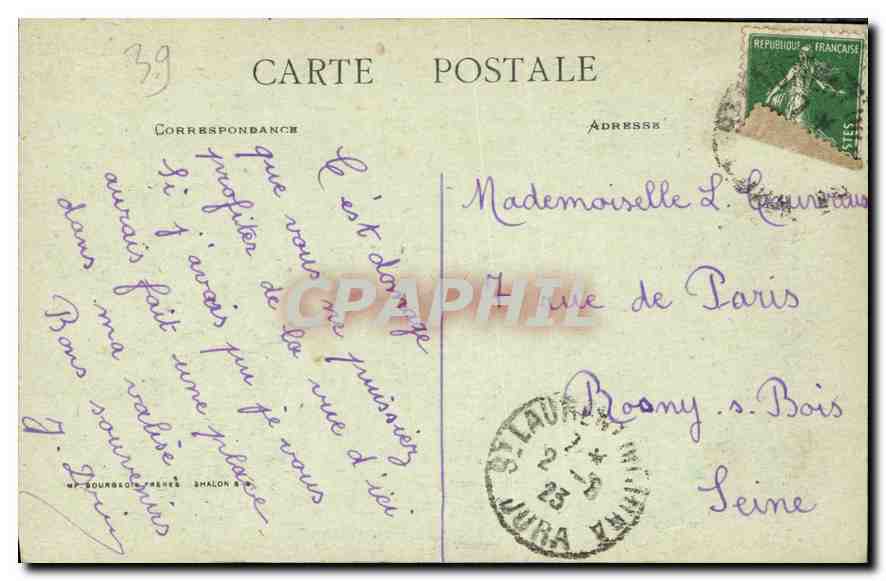 39
CARTE POSTALE
CORRESPONDANCE
ADRESSE
REPUBLIQUE FRANÇAISE
POSTES
C'est domage
que vous ne puissiez
profiter de la vue d'ici
Si j'avais pu je vous
aurais fait une place
dans ma valise
Bons souvenirs
J.
Mademoiselle L.
7 rue de Paris
Rosny s. Bois
Seine
CPAPHIL
ST LAURENT
2 - 8
23
JURA
IMP. BOURGEOIS FRERES CHALON S S